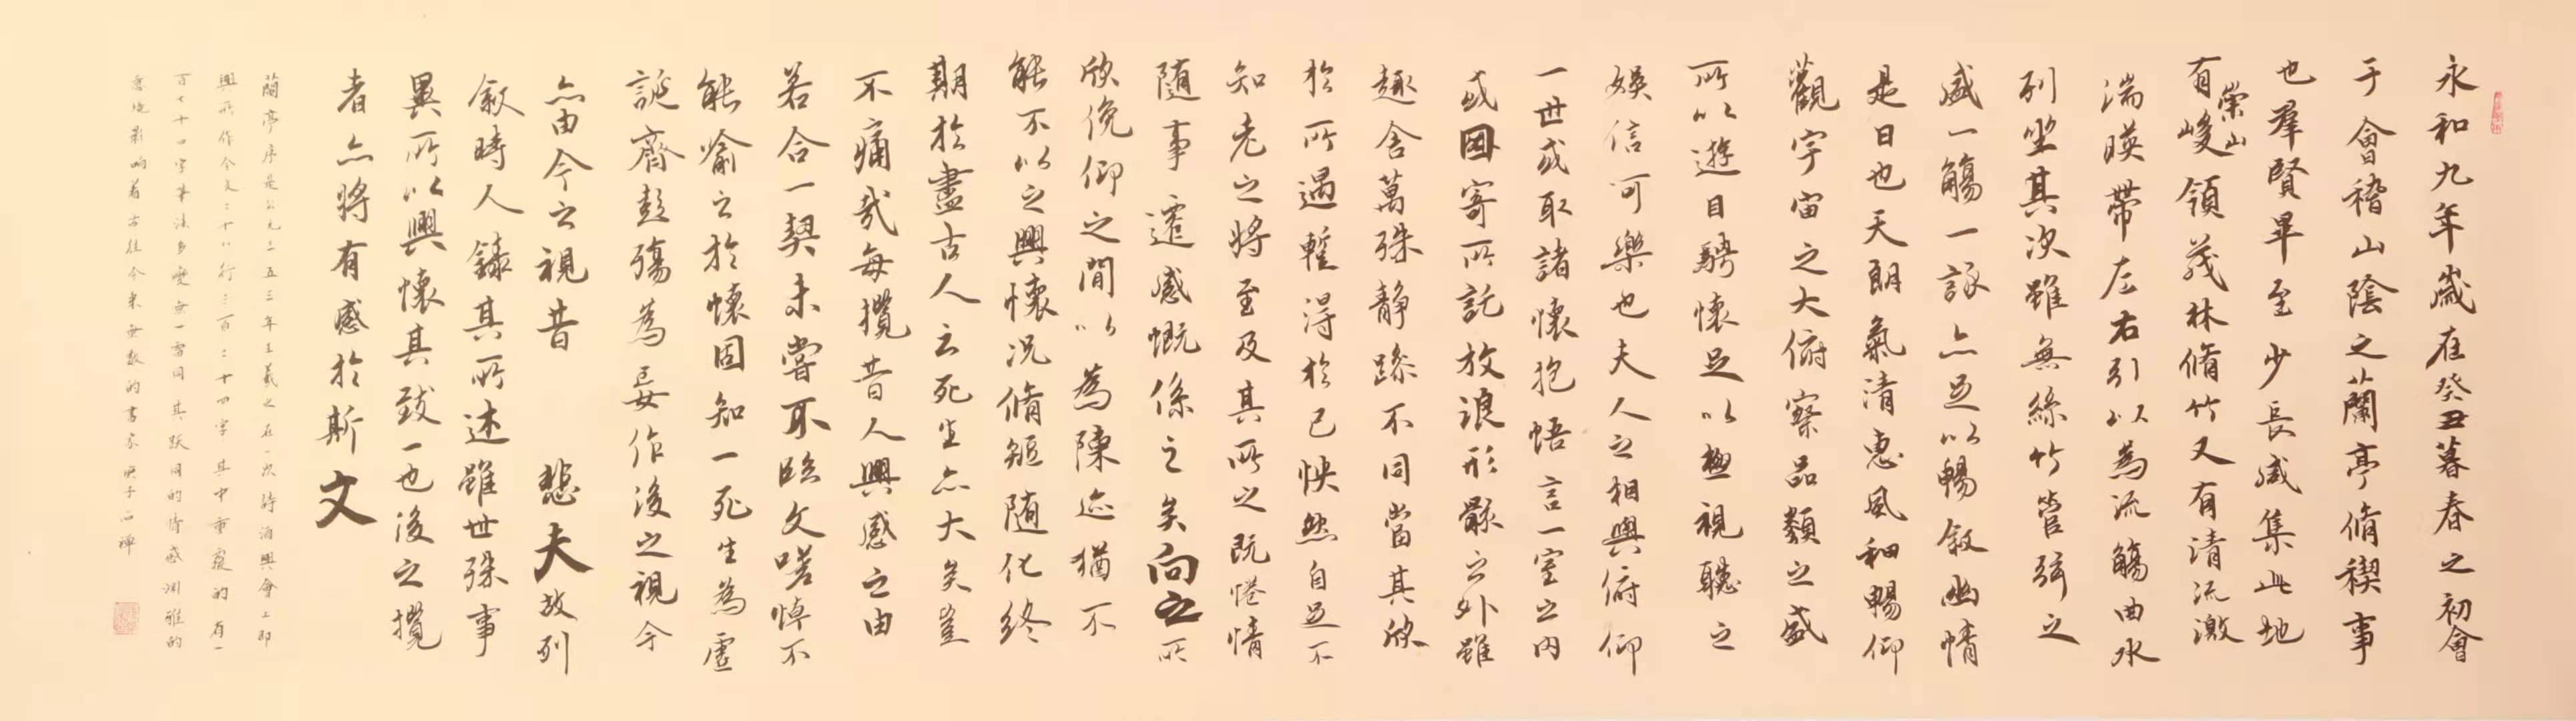 永和九年歲在癸丑暮春之初會
于會稽山陰之蘭亭脩稧事
也羣賢畢至少長咸集此地
有崇山峻領茂林脩竹又有清流激
湍暎帶左右引以為流觴曲水
列坐其次雖無絲竹管弦之
盛一觴一詠亦足以暢敘幽情
是日也天朗氣清惠風和暢仰
觀宇宙之大俯察品類之盛
所以遊目騁懷足以極視聽之
娛信可樂也夫人之相與俯仰
一世或取諸懷抱悟言一室之內
或因寄所託放浪形骸之外雖
趣舍萬殊靜躁不同當其欣
於所遇暫得於己怏然自足不
知老之將至及其所之既惓情
隨事遷感慨係之矣向之所
欣俛仰之間以為陳迹猶不
能不以之興懷況脩短隨化終
期於盡古人云死生亦大矣豈
不痛哉每攬昔人興感之由
若合一契未嘗不臨文嗟悼不
能喻之於懷固知一死生為虛
誕齊彭殤為妄作後之視今
亦由今之視昔 悲夫故列
敘時人錄其所述雖世殊事
異所以興懷其致一也後之攬
者亦將有感於斯文
蘭亭序是公元三五三年王羲之在一次詩酒興會上即
興所作全文二十八行三百二十四字其中重複的有一
百七十四字筆法多變無一雷同其跃同的情感淵雅的
意境影响着古往今来無數的書家庚子